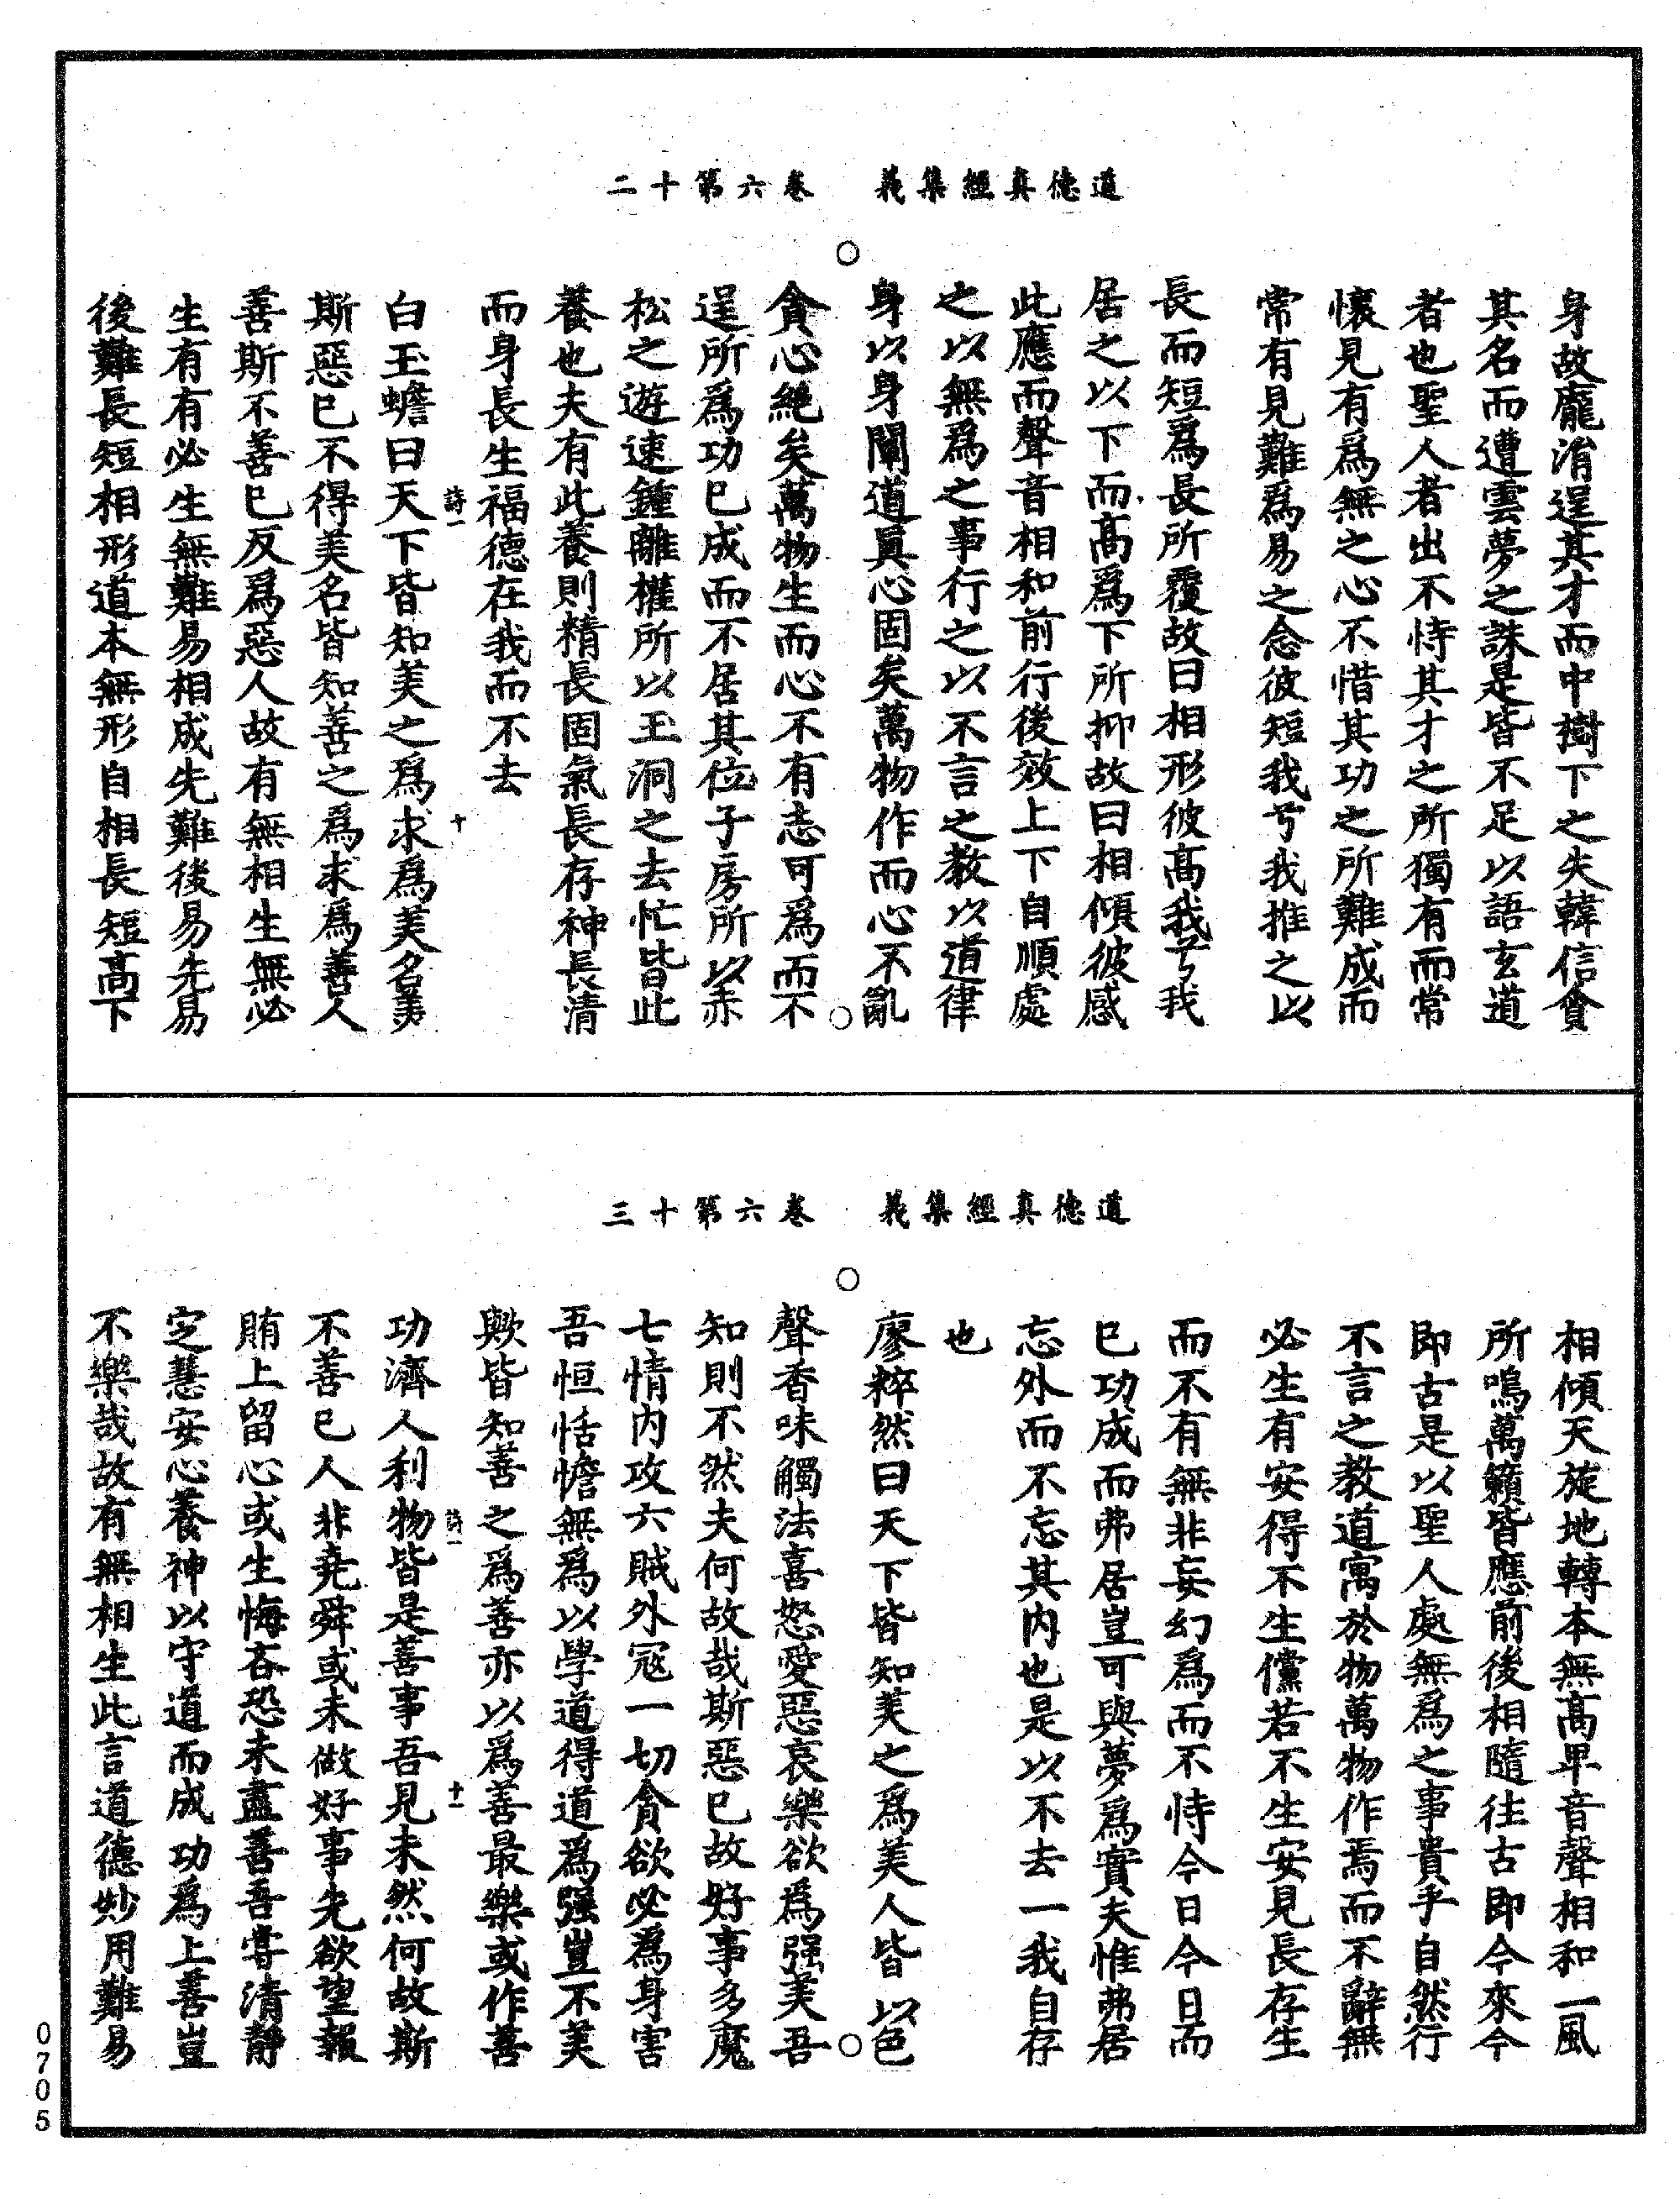 道德真經集義　卷六第十二
身故龐涓逞其才而中樹下之失韓信貪
其名而遭雲夢之誅是皆不足以語玄道
者也聖人者出不恃其才之所獨有而常
懷見有爲無之心不惜其功之所難成而
常有見難爲易之念彼短我兮我推之以
長而短爲長所覆故曰相形彼高我兮我
居之以下而高爲下所抑故曰相傾彼感
此應而聲音相和前行後效上下自順處
之以無爲之事行之以不言之教以道律
身以身闡道真心固矣萬物作而心不亂
貪心絕矣萬物生而心不有志可爲而不
逞所爲功已成而不居其位子房所以赤
松之遊速鍾離權所以王洞之去忙皆此
養也夫有此養則精長固氣長存神長清
而身長生福德在我而不去
詩一　十
白玉蟾曰天下皆知美之爲求爲美名美
斯惡已不得美名皆知善之爲求爲善人
善斯不善已反爲惡人故有無相生無必
生有有必生無難易相成先難後易先易
後難長短相形道本無形自相長短高下
道德真經集義　卷六第十三
相傾天旋地轉本無高卑音聲相和一風
所鳴萬籟皆應前後相隨往古即今來今
即古是以聖人處無爲之事貴乎自然行
不言之教道寓於物萬物作焉而不辭無
必生有安得不生儻若不生安見長存生
而不有無非妄幻爲而不恃今日今日而
已功成而弗居豈可與夢爲實夫惟弗居
忘外而不忘其內也是以不去一我自存
也
廖粹然曰天下皆知美之爲美人皆以色
聲香味觸法喜怒愛惡哀樂欲爲强美吾
知則不然夫何故哉斯惡已故好事多魔
七情內攻六賊外冦一切貪欲必爲身害
吾恒恬憺無爲以學道得道爲强豈不美
歟皆知善之爲善亦以爲善最樂或作善
詩一　十一
功濟人利物皆是善事吾見未然何故斯
不善已人非堯舜或未做好事先欲望報
賄上留心或生悔吝恐未盡善吾嘗清靜
定慧安心養神以守道而成功爲上善豈
不樂哉故有無相生此言道德妙用難易
0705